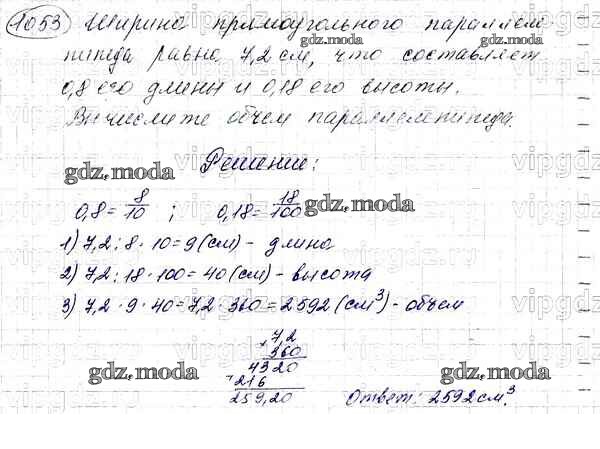 1053 Ширина прямоугольного параллеле-
пипеда равна 7,2 см, что составляет
0,8 его длины и 0,18 его высоты.
Вычислите объем параллелепипеда.
Решение:
0,8 = 8/10 ; 0,18 = 18/100
1) 7,2 : 8 · 10 = 9 (см) - длина
2) 7,2 : 18 · 100 = 40 (см) - высота
3) 7,2 · 9 · 40 = 7,2 · 360 = 2592 (см³) - объем
× 7,2
360
4320
+ 216
259,20
Ответ: 2592 см³.
gdz.moda
gdz.moda
gdz.moda
gdz.moda
gdz.moda
gdz.moda
vipgdz
vipgdz
vipgdz